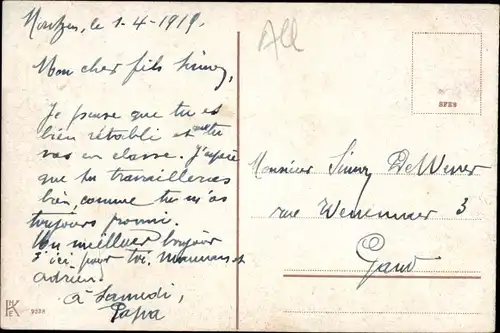 le 1-4-1919.
Mon cher fils
Je pense que tu es
bien rétabli et que tu
vas en classe. J'espère
que tu travailleras
bien, comme tu m'as
toujours promis.
Un meilleur bonjour
d'ici pour toi, maman et
adrien.
à Samedi,
Papa
All
SFES
Monsieur De Wever
rue 3
Gand
PKE
9328